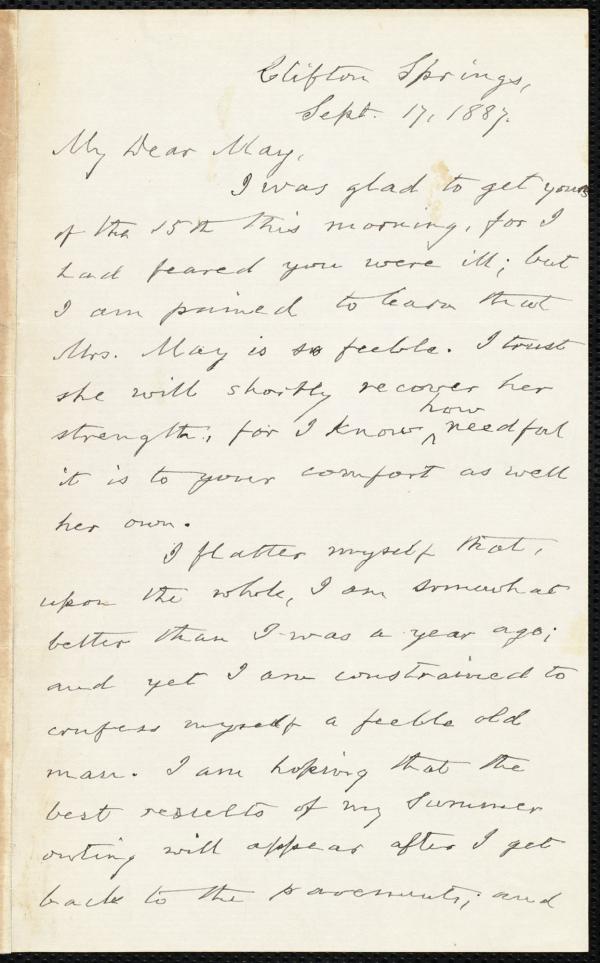 Clifton Springs,
Sept. 17, 1887.
My Dear May,
I was glad to get yours
of the 15th this morning, for I
had feared you were ill; but
I am pained to learn that
Mrs. May is so feeble. I trust
she will shortly recover her
strength, for I know how needful
it is to your comfort as well
her own.
I flatter myself that,
upon the whole, I am somewhat
better than I was a year ago;
and yet I am constrained to
confess myself a feeble old
man. I am hoping that the
best results of my Summer
outing will appear after I get
back to the pavements; and